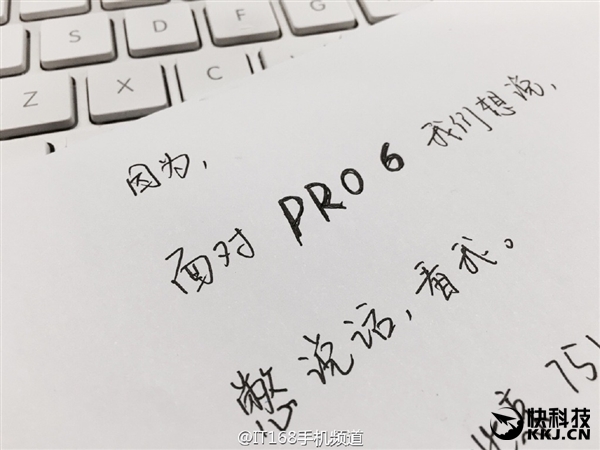 S D F G
Z X C
因为,
面对 PRO 6 我们想说,
憋说话,看我。
北京 751
@IT168手机频道
快科技
KKJ.CN